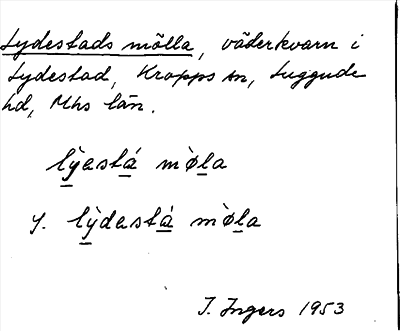 Lydestads mölla, väderkvarn i
Lydestad, Kropps sn, Luggude
hd, Mhs län.
lỳestá mø̀la
y. lỳdastá mø̀la
I. Ingers 1953